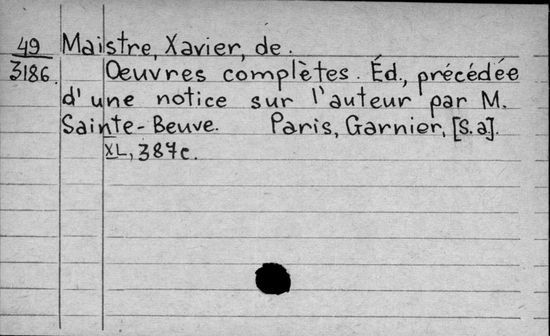 49 Maistre, Xavier, de.
3186. Oeuvres complètes. Éd., précédée
d'une notice sur l'auteur par M.
Sainte-Beuve. Paris, Garnier, [s.a].
XL, 387c.